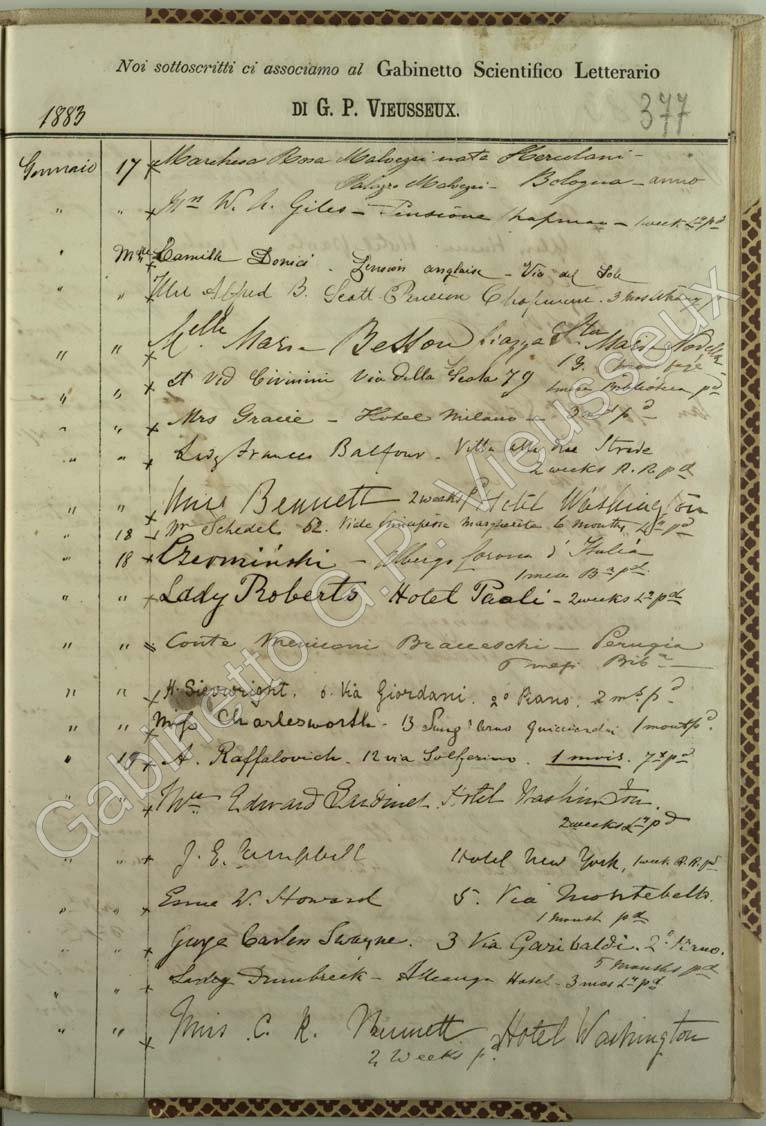 Noi sottoscritti ci associamo al Gabinetto Scientifico Letterario
DI G. P. VIEUSSEUX.
1883
377
Gennaio 17 x Marchesa Rosa Malvezzi nata Hercolani -
Malvezzi - Bologna - anno
" " x W. A. Giles - Pensione Chapman - 1 week pd
" x Camille Donici. Pension anglaise - Via del Sole
" " Alfred B. Scott Pension Chapman. 3 mos
" " x Melle Maria Betton Piazza Sta Maria Novella
13.
" " x Civinini Via della Scala 79
1 mese Biblioteca pd
" " x Mrs Gracie - Hotel Milano - pd
" " x Lady Frances Balfour - Villa alle due Strade
2 weeks R. R. pd
" " x Miss Bennett 2 weeks pd Hotel Washington
" 18 - Mr Schedel 62. Viale Principessa Margherita 6 months pd
" 18 x Czermiński - Albergo Corona d'Italia
1 mese pd.
" " x Lady Roberts Hotel Paoli - 2 weeks pd
" " Conte Meniconi Bracceschi - Perugia
mesi Bib
" " x H. Sievwright. 6. Via Giordani. 2o Piano. 2 ms. pd
" " x Miss Charlesworth - 13 Lung'Arno Guicciardini 1 month pd.
" 19 x A. Raffalovich. 12 via Solferino. 1 mois. pd
" " x Edward Hotel Washington.
2 weeks pd
" " x J. E. Campbell Hotel New York, 1 week R. R. pd
" " x Esme W. Howard 5. Via Montebello.
1 month pd
" " x George Carless Swayne. 3 Via Garibaldi. 2o Piano.
5 months pd
" " x Lady Dumbreck - Hotel - 3 mos pd
" " x Miss C. R. Hotel Washington
2 Weeks p.
Gabinetto G.P. Vieusseux